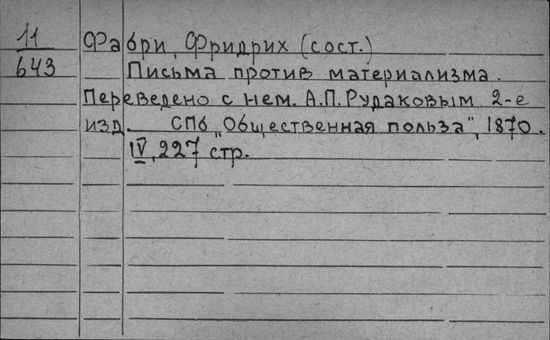 11 Фабри, Фридрих (сост.)
643 Письма против материализма.
Переведено с нем. А.П. Рудаковым 2-е
изд. СПб „Общественная польза", 1870.
IV, 227 стр.